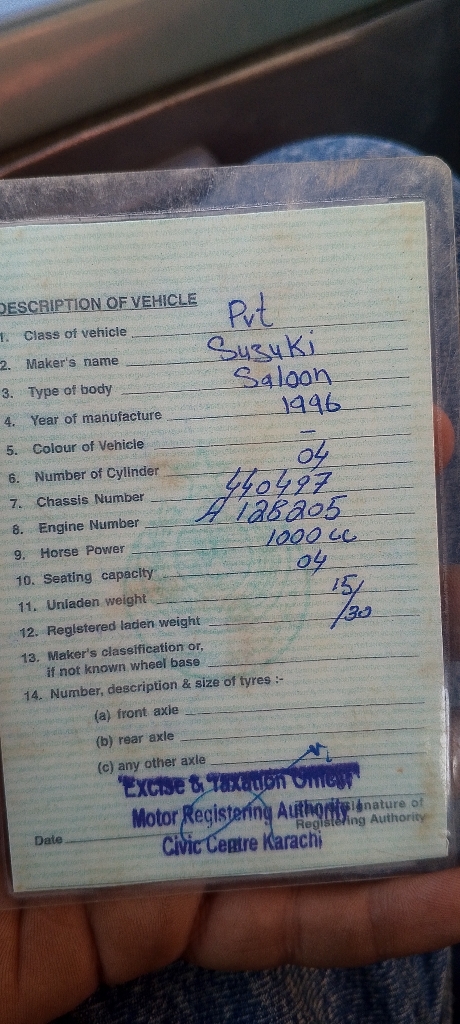 DESCRIPTION OF VEHICLE
1. Class of vehicle Pvt
2. Maker's name Suzuki
3. Type of body Saloon
4. Year of manufacture 1996
5. Colour of Vehicle –
6. Number of Cylinder 04
7. Chassis Number 440497
8. Engine Number A 128205
9. Horse Power 1000 cc
10. Seating capacity 04
11. Unladen weight 15/
12. Registered laden weight /30
13. Maker's classification or,
if not known wheel base
14. Number, description & size of tyres :-
(a) front axle
(b) rear axle
(c) any other axle
"Excise & Taxation Officer"
Motor Registering Authority
Signature of
Registering Authority
Date
Civic Centre Karachi